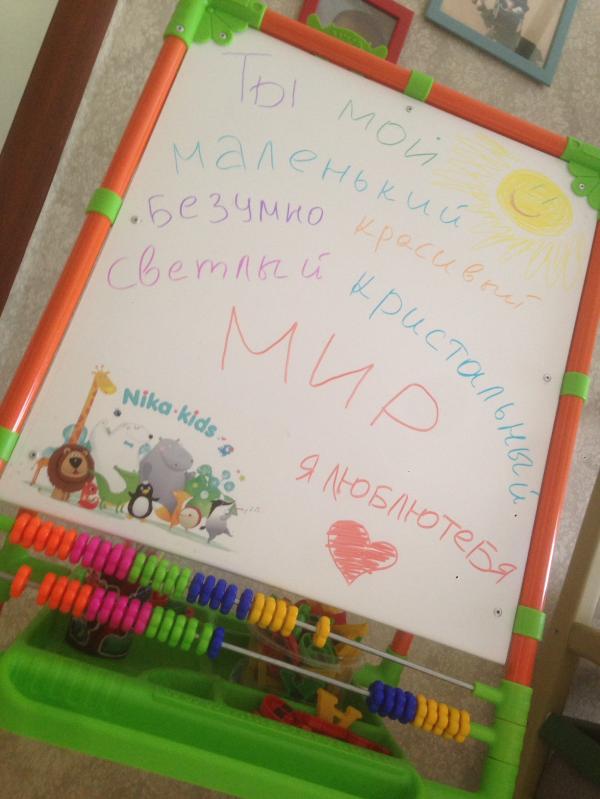 Ты мой
маленький
безумно красивый
светлый кристальный
МИР
Nika·kids
я люблютебя